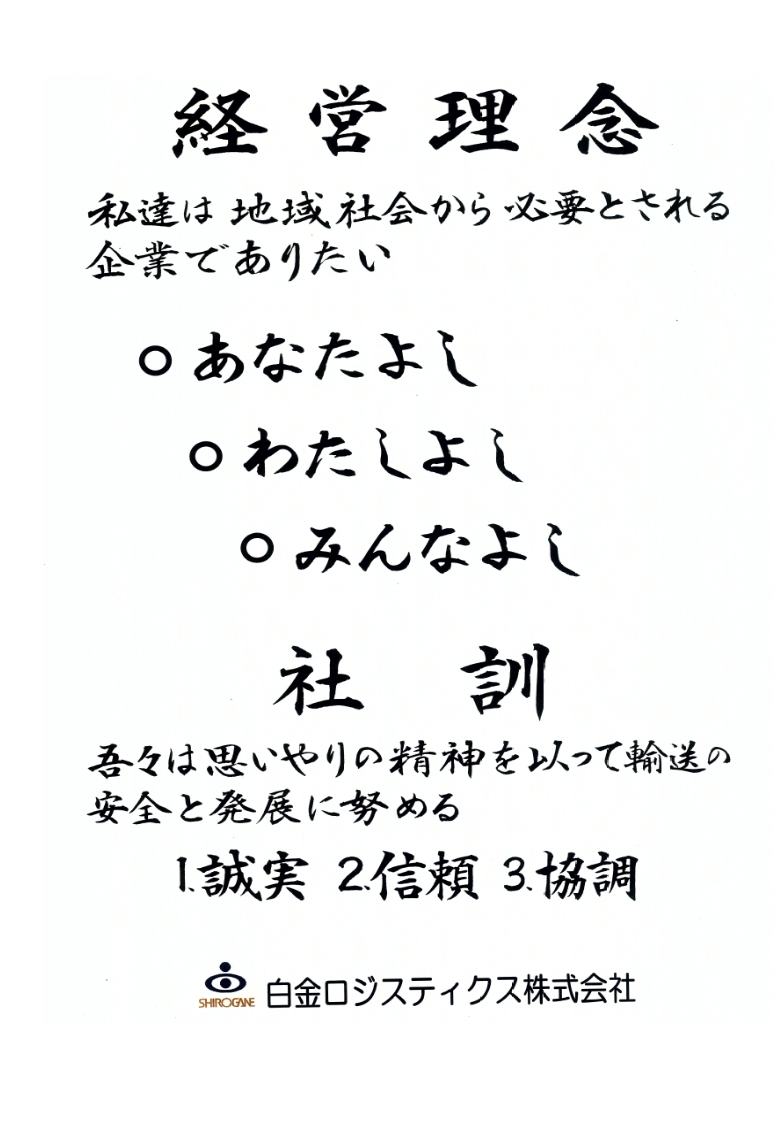 経営理念
私達は地域社会から必要とされる
企業でありたい
○あなたよし
○わたしよし
○みんなよし
社訓
吾々は思いやりの精神を以って輸送の
安全と発展に努める
1.誠実 2.信頼 3.協調
SHIROGANE 白金ロジスティクス株式会社